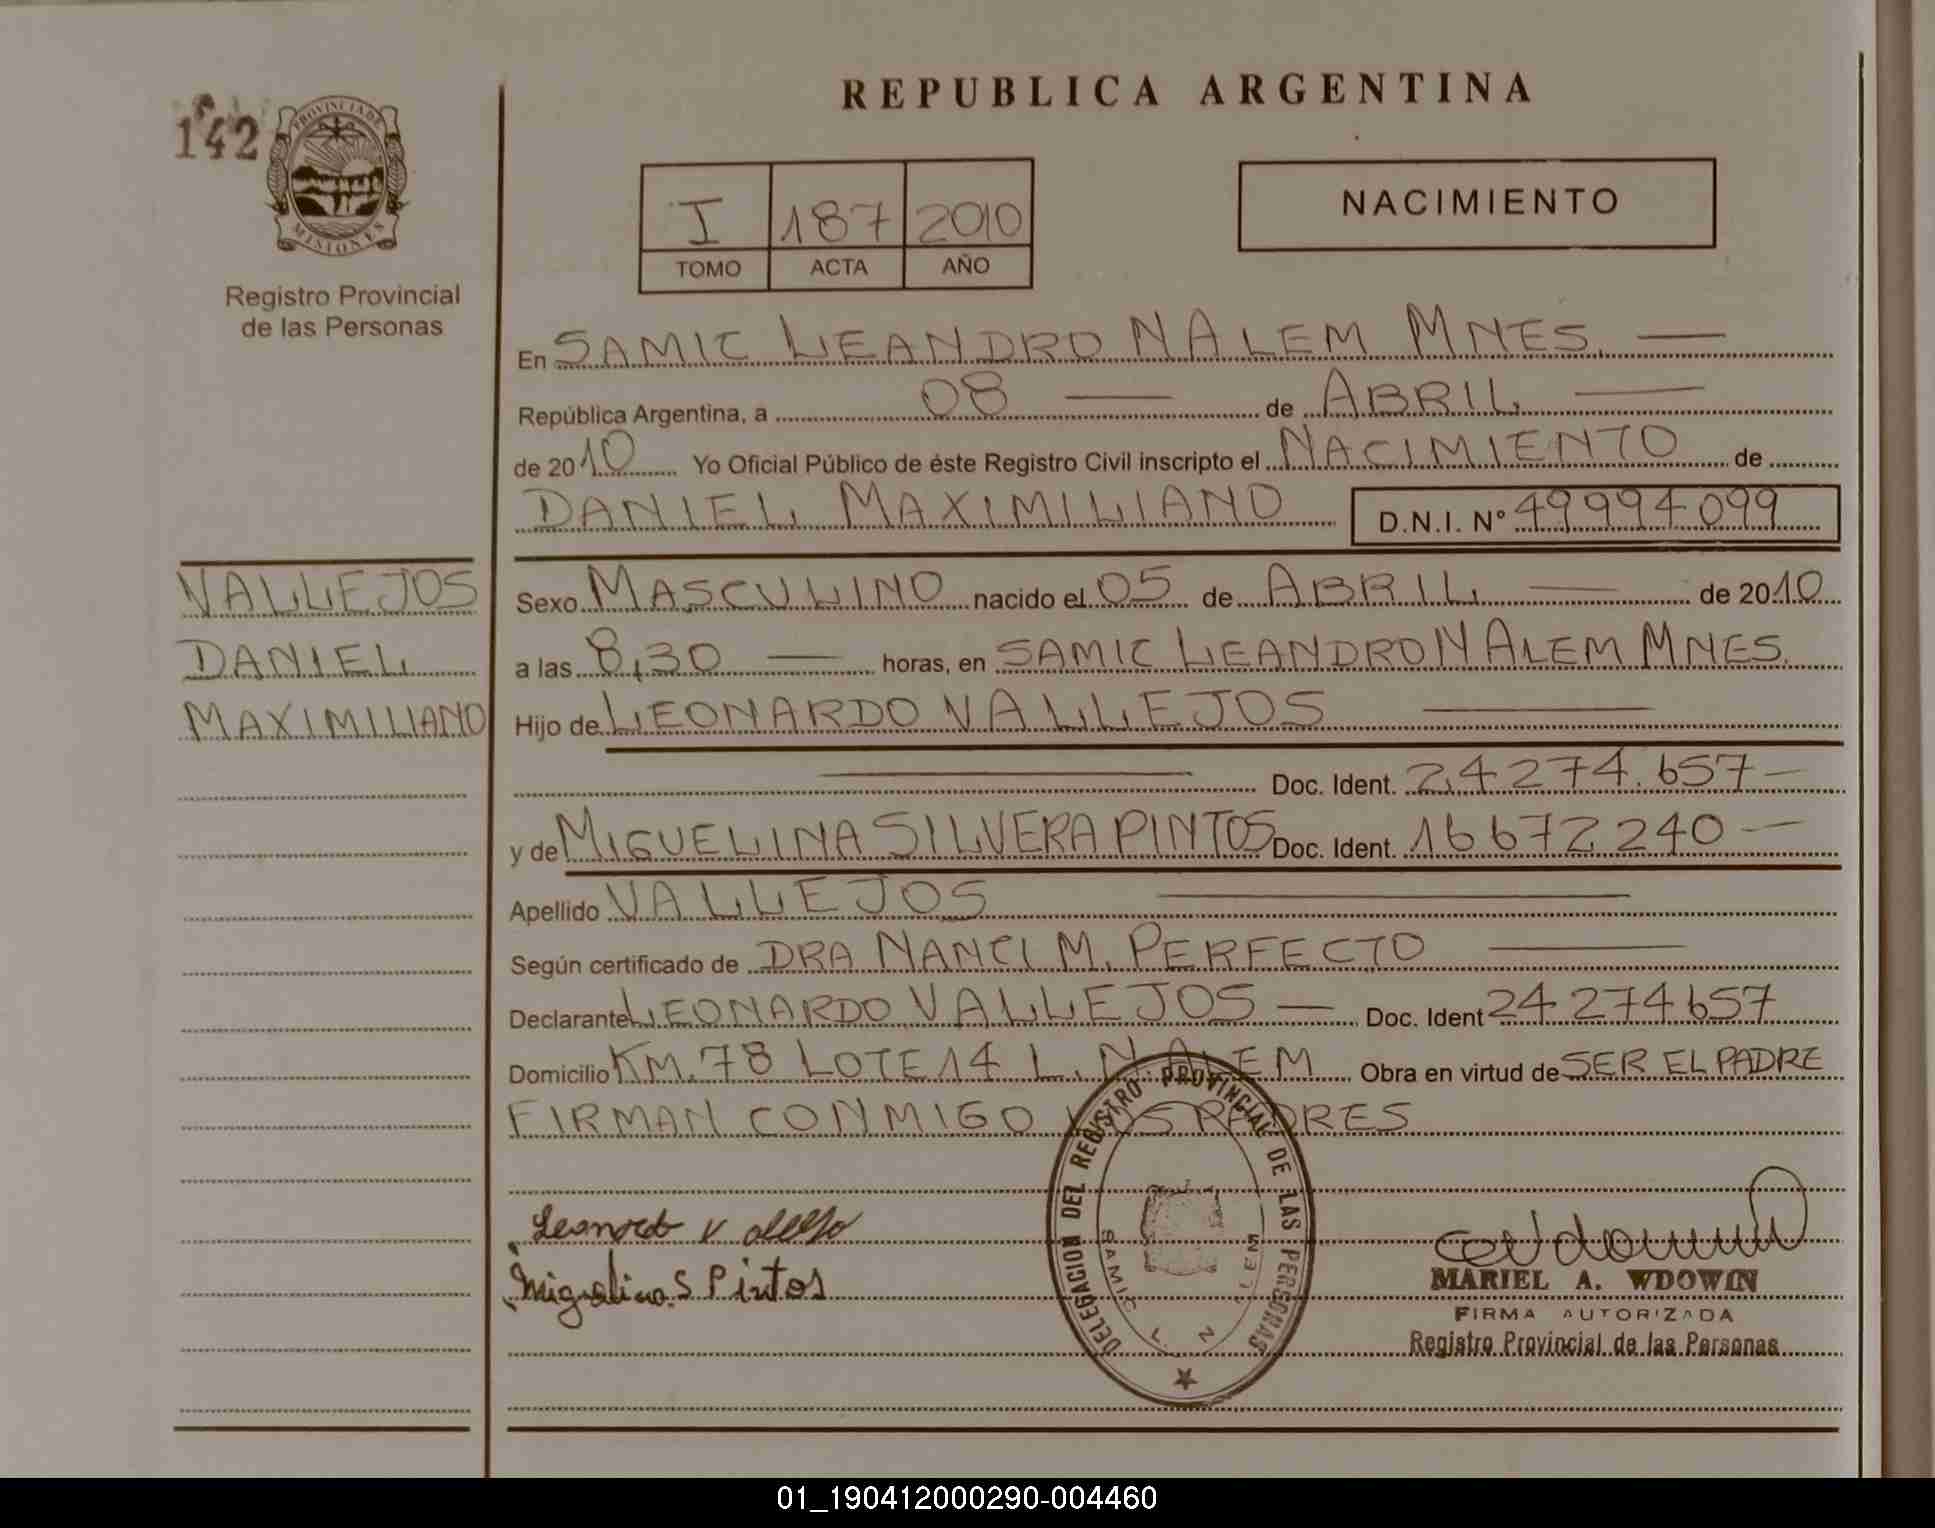 REPUBLICA ARGENTINA
142
PROVINCIA DE
MISIONES
Registro Provincial
de las Personas
I 187 2010
TOMO ACTA AÑO
NACIMIENTO
En SAMIC LEANDRO N ALEM MNES.
República Argentina, a 08 de ABRIL
de 2010 Yo Oficial Público de éste Registro Civil inscripto el NACIMIENTO de
DANIEL MAXIMILIANO D.N.I. Nº 49994099
VALLEJOS
DANIEL
MAXIMILIANO
Sexo MASCULINO nacido el 05 de ABRIL de 2010
a las 8,30 horas, en SAMIC LEANDRO N ALEM MNES.
Hijo de LEONARDO VALLEJOS
Doc. Ident. 24274.657
y de MIGUELINA SILVERA PINTOS Doc. Ident. 16672240
Apellido VALLEJOS
Según certificado de DRA NANCI M. PERFECTO
Declarante LEONARDO VALLEJOS Doc. Ident 24274657
Domicilio KM. 78 LOTE 14 L. N ALEM Obra en virtud de SER EL PADRE
FIRMAN CONMIGO LOS PADRES
DELEGACION DEL REGISTRO PROVINCIAL DE LAS PERSONAS
SAMIC L. N ALEM
Miguelina S Pintos
MARIEL A. WDOWIN
FIRMA AUTORIZADA
Registro Provincial de las Personas
01_190412000290-004460